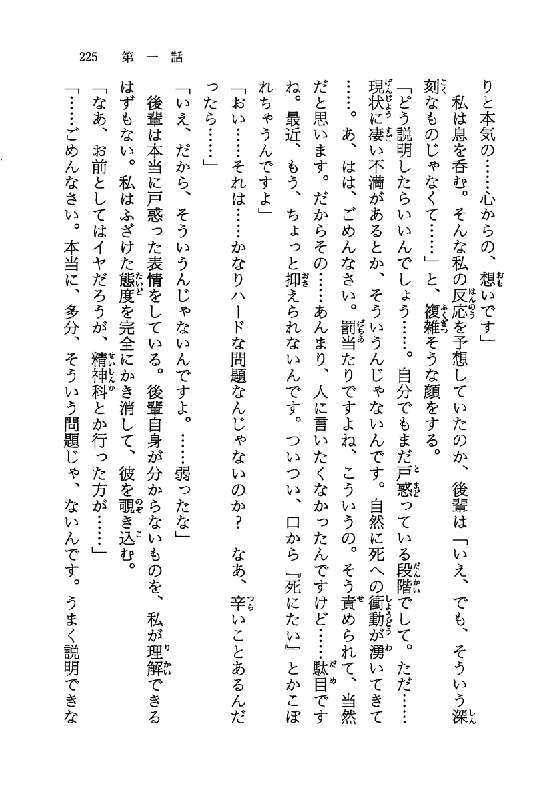 225　第一話
りと本気の……心からの、想いです」
　私は息を呑む。そんな私の反応を予想していたのか、後輩は「いえ、でも、そういう深
刻なものじゃなくて……」と、複雑そうな顔をする。
「どう説明したらいいんでしょう……。自分でもまだ戸惑っている段階でして。ただ……
現状に凄い不満があるとか、そういうんじゃないんです。自然に死への衝動が湧いてきて
……。あ、はは、ごめんなさい。罰当たりですよね、こういうの。そう責められて、当然
だと思います。だからその……あんまり、人に言いたくなかったんですけど……駄目です
ね。最近、もう、ちょっと抑えられないんです。ついつい、口から『死にたい』とかこぼ
れちゃうんですよ」
「おい……それは……かなりハードな問題なんじゃないのか？　なあ、辛いことあるんだ
ったら……」
「いえ、だから、そういうんじゃないんですよ。……弱ったな」
　後輩は本当に戸惑った表情をしている。後輩自身が分からないものを、私が理解できる
はずもない。私はふざけた態度を完全にかき消して、彼を覗き込む。
「なあ、お前としてはイヤだろうが、精神科とか行った方が……」
「……ごめんなさい。本当に、多分、そういう問題じゃ、ないんです。うまく説明できな